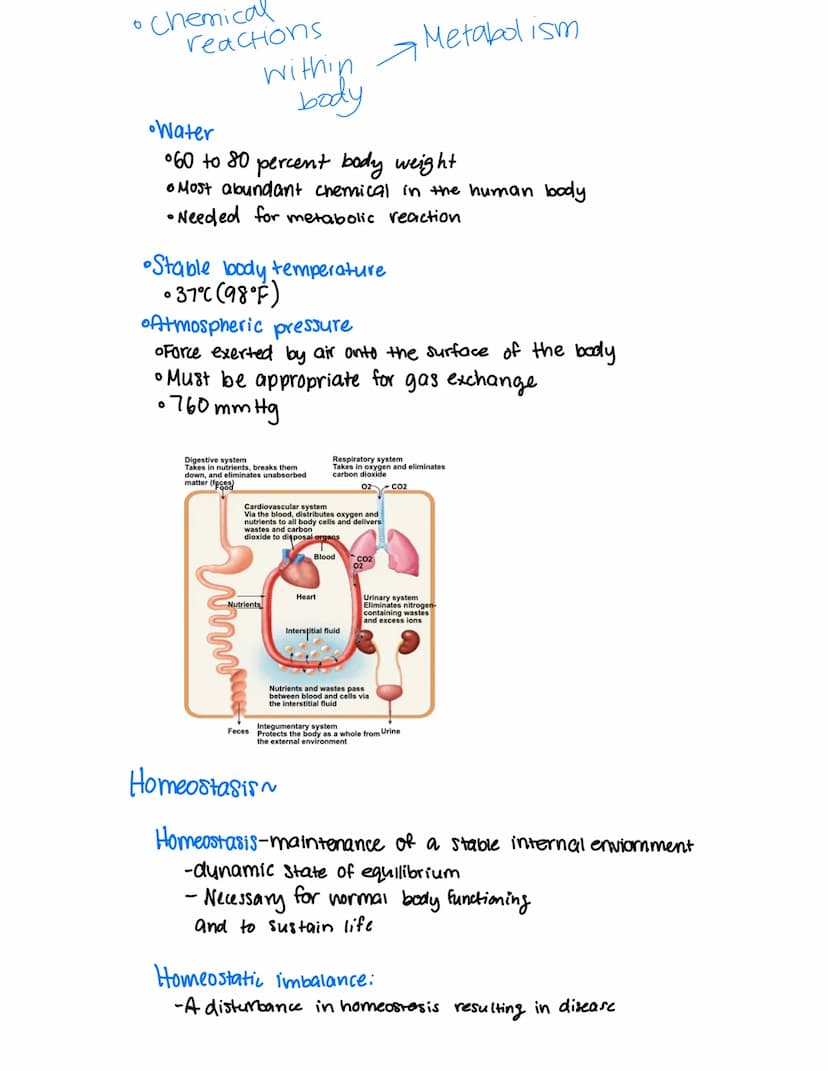 • Chemical
reactions
within
body
→ Metabolism
•Water
•60 to 80 percent body weight
•Most abundant chemical in the human body
•Needed for metabolic reaction
•Stable body temperature
•37°C (98°F)
•Atmospheric pressure
•Force exerted by air onto the surface of the body
•Must be appropriate for gas exchange
•760 mmHg
Digestive system
Takes in nutrients, breaks them
down, and eliminates unabsorbed
matter (feces)
Food
Respiratory system
Takes in oxygen and eliminates
carbon dioxide
O2
CO2
Cardiovascular system
Via the blood, distributes oxygen and
nutrients to all body cells and delivers
wastes and carbon
dioxide to disposal organs
Blood
CO2
O2
Heart
Nutrients
Urinary system
Eliminates nitrogen-
containing wastes
and excess ions
Interstitial fluid
Nutrients and wastes pass
between blood and cells via
the interstitial fluid
Feces
Integumentary system
Protects the body as a whole from
the external environment
Urine
Homeostasis~
Homeostasis-maintenance of a stable internal enviornment
-dynamic state of equilibrium
- Necessary for normal body functioning
and to sustain life
Homeostatic imbalance:
-A disturbance in homeostasis resulting in disease